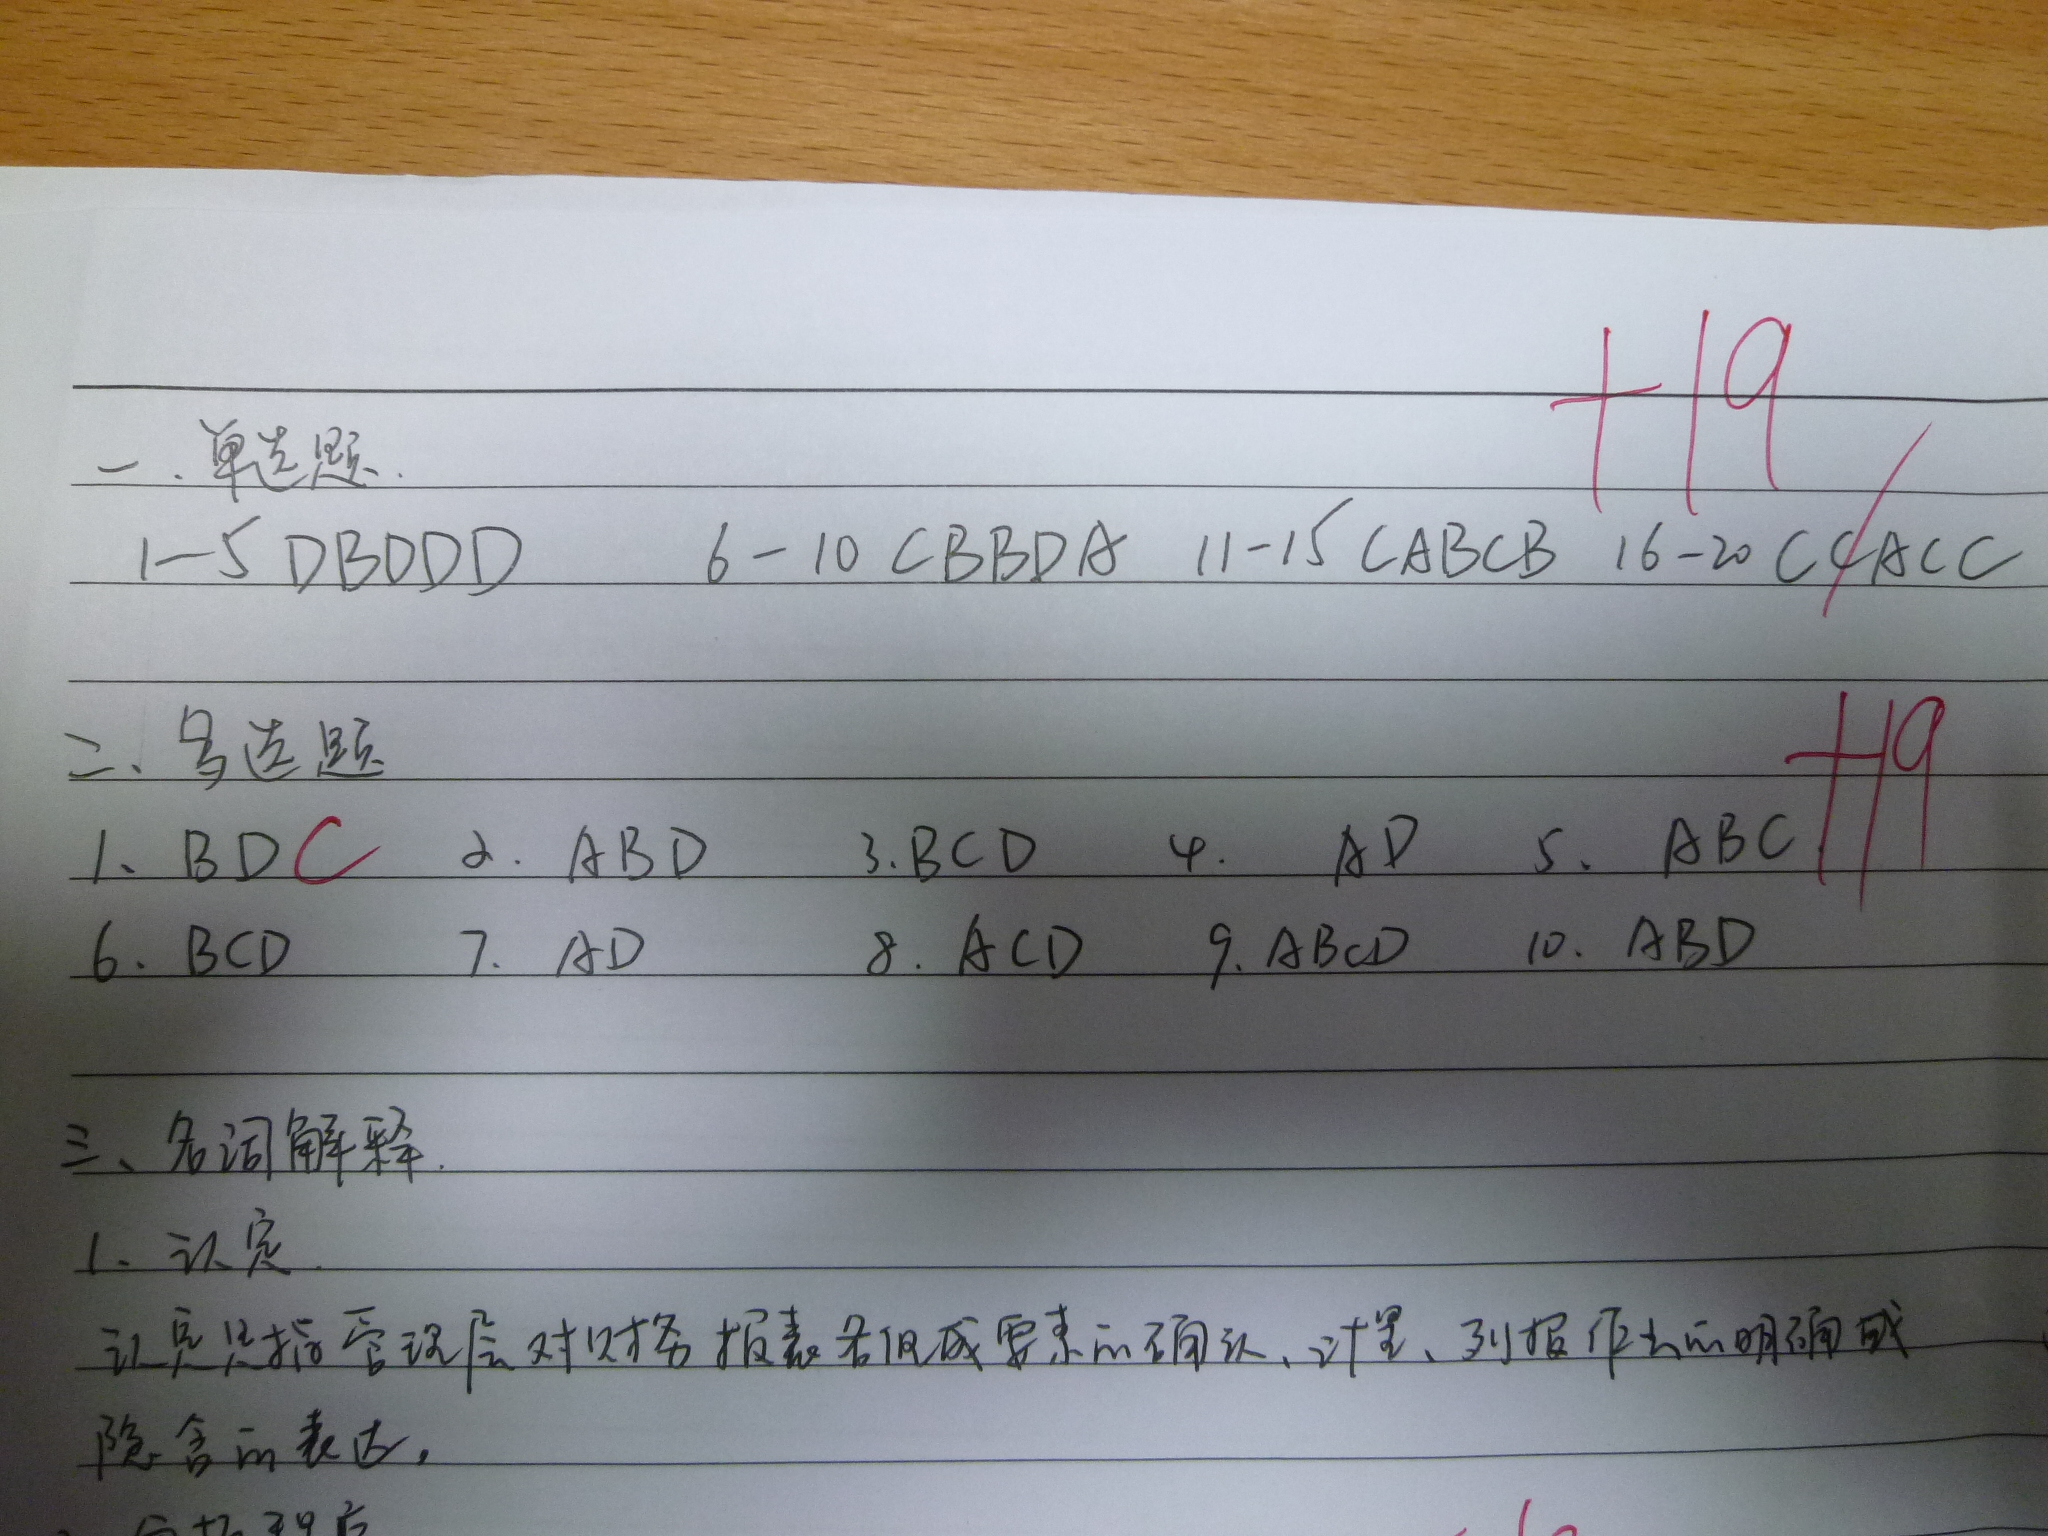 +19
一.单选题.
1-5 DBDDD 6-10 CBBDA 11-15 CABCB 16-20 CCACC
二、多选题
+19
1、BDC 2. ABD 3.BCD 4. AD 5、ABC
6. BCD 7. AD 8. ACD 9.ABCD 10. ABD
三、名词解释.
1、认定.
认定是指管理层对财务报表各组成要素的确认、计量、列报作出的明确或
隐含的表达。